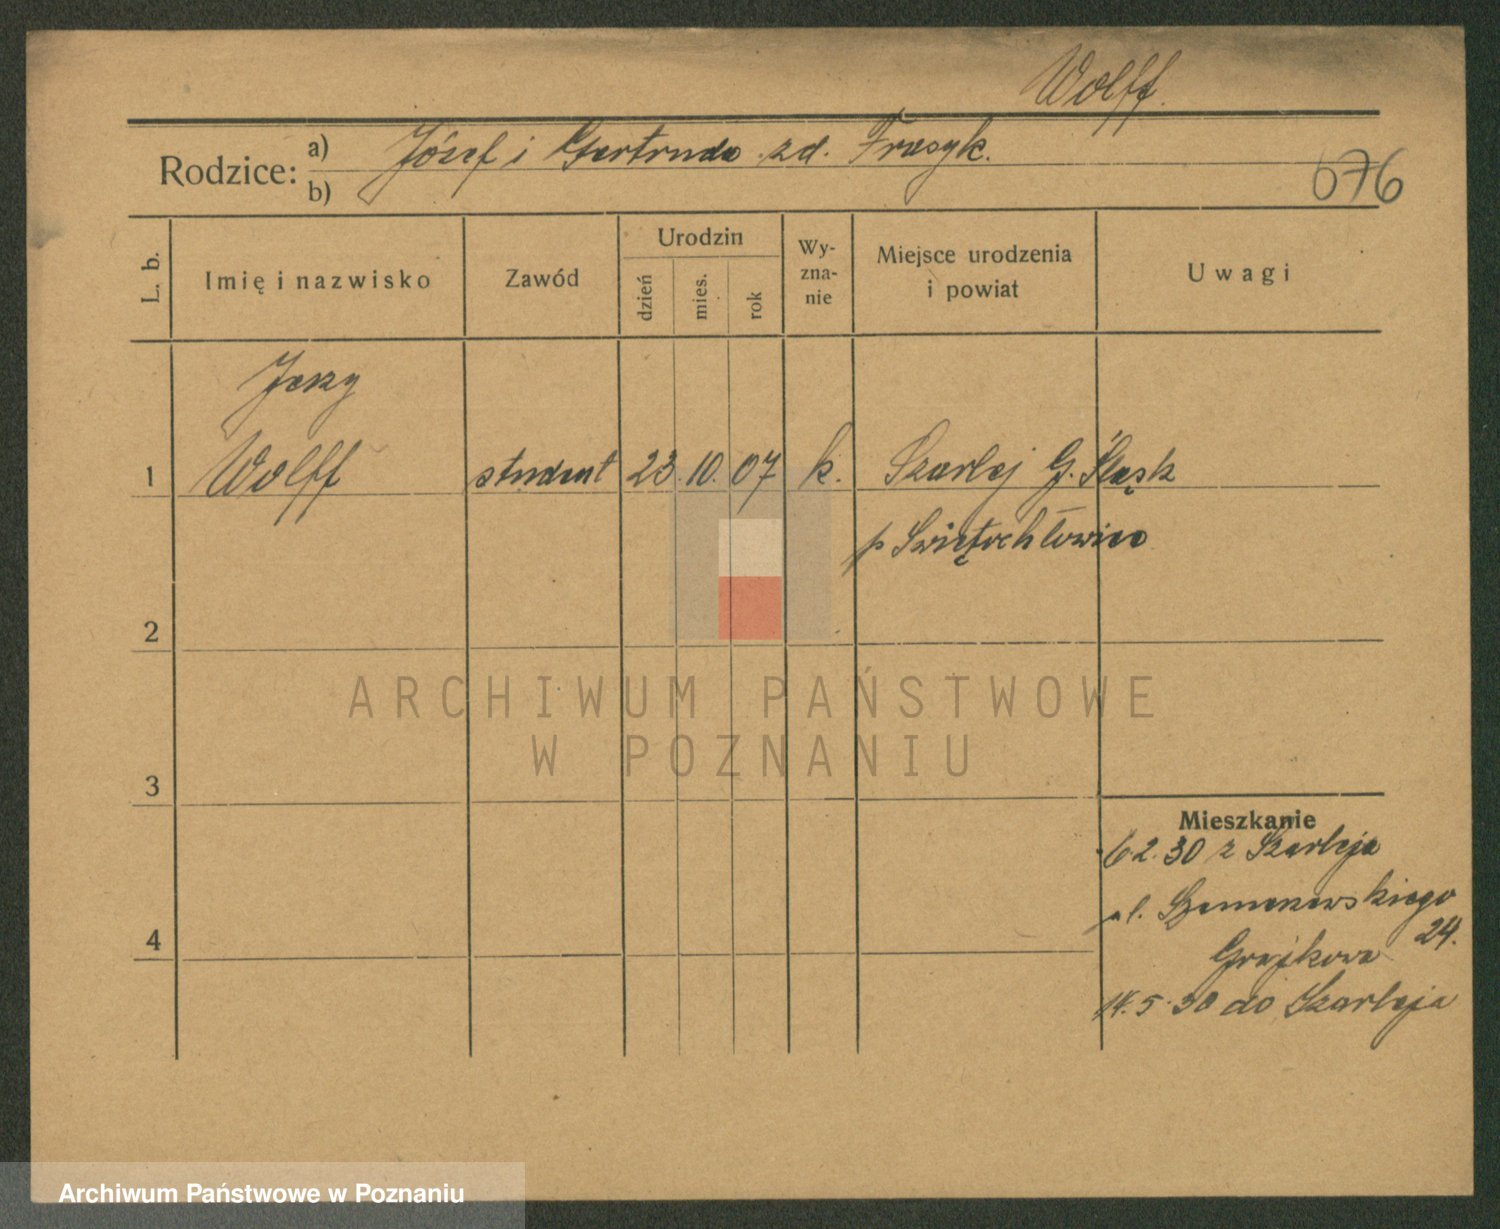 Wolff.
Rodzice: a) Józef i Gertruda zd. Frasyk.
b)
076
L. b.
Imię i nazwisko
Zawód
Urodzin
dzień
mies.
rok
Wy-
zna-
nie
Miejsce urodzenia
i powiat
Uwagi
Jerzy
1 Wolff student 23. 10. 07 k. Szarlej G. Śląsk
p Świętochłowice
2
3
4
Mieszkanie
6.2.30 z Szarleja
24.
14.5.30 do Szarleja
ARCHIWUM PAŃSTWOWE
W POZNANIU
Archiwum Państwowe w Poznaniu